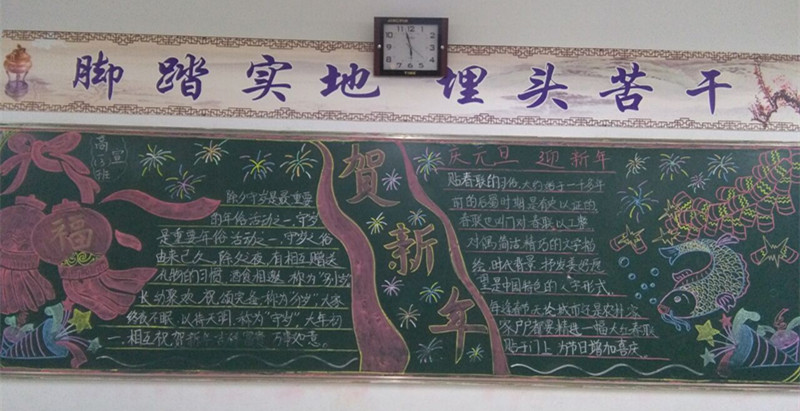 脚踏实地 埋头苦干
高一
13班
宣
福
贺新年
除夕守岁是最重要
的年俗活动之一,守岁
是重要年俗活动之一,守岁之俗
由来已久。除夕之夜,有相互赠送
礼物的习惯 酒食相邀,称为"别岁"
长幼聚欢,祝颂完备,称为"分岁"大家
终夜不眠,以待天明,称为"守岁"。大年初一
相互祝贺新年 万事如意。
庆元旦 迎新年
贴春联的习俗,大约始于一千多年
前的后蜀时期是有史以证的
春联也叫门对 春联以工整
对偶 简洁 精巧的文字描
绘 时代背景 抒发美好愿
望是中国特色的文字形式。
每逢春节 无论城市还是农村,家
家户户都要精选一幅大红春联
贴于门上 为节日增加喜庆。